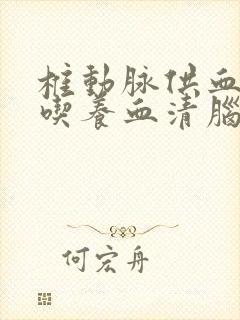 椎動脉供血
喫養血清腦
何宏舟